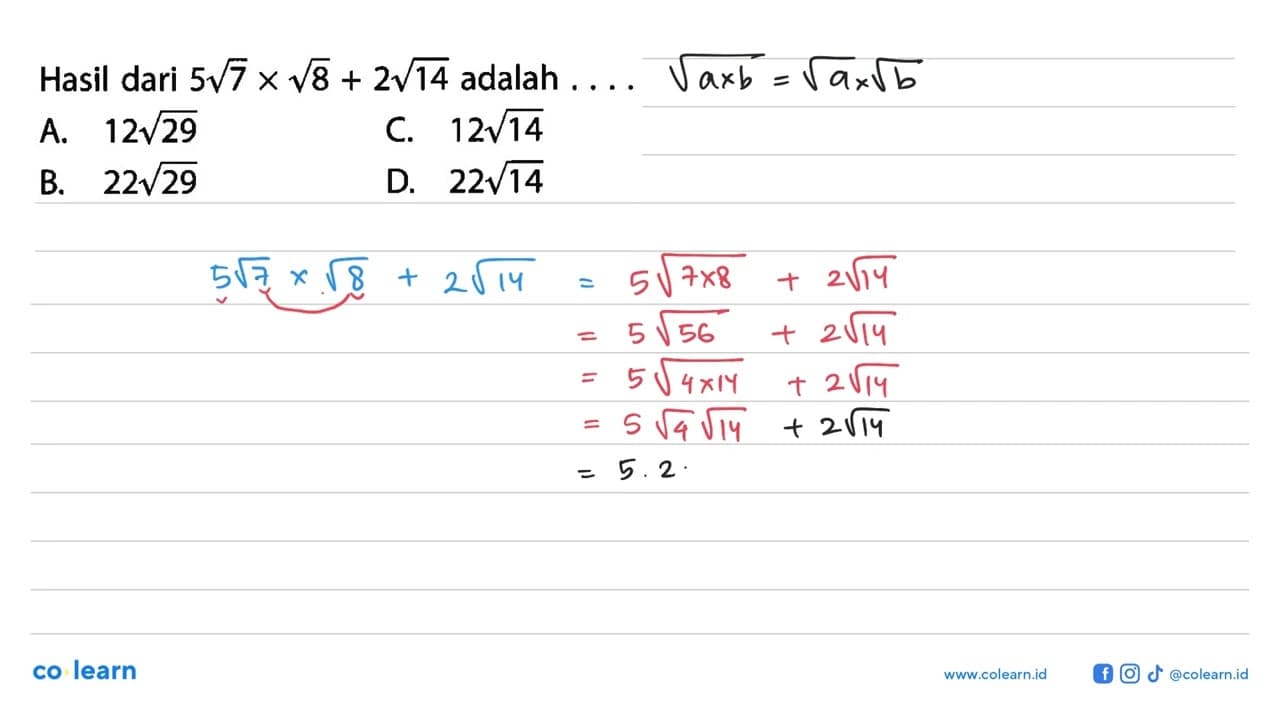 Hasil dari 5√7 × √8 + 2√14 adalah . . . . √a×b = √a×√b
A. 12√29 C. 12√14
B. 22√29 D. 22√14
5√7 × √8 + 2√14 = 5√7×8 + 2√14
= 5√56 + 2√14
= 5√4×14 + 2√14
= 5√4√14 +2√14
= 5.2.
co learn www.colearn.id @colearn.id